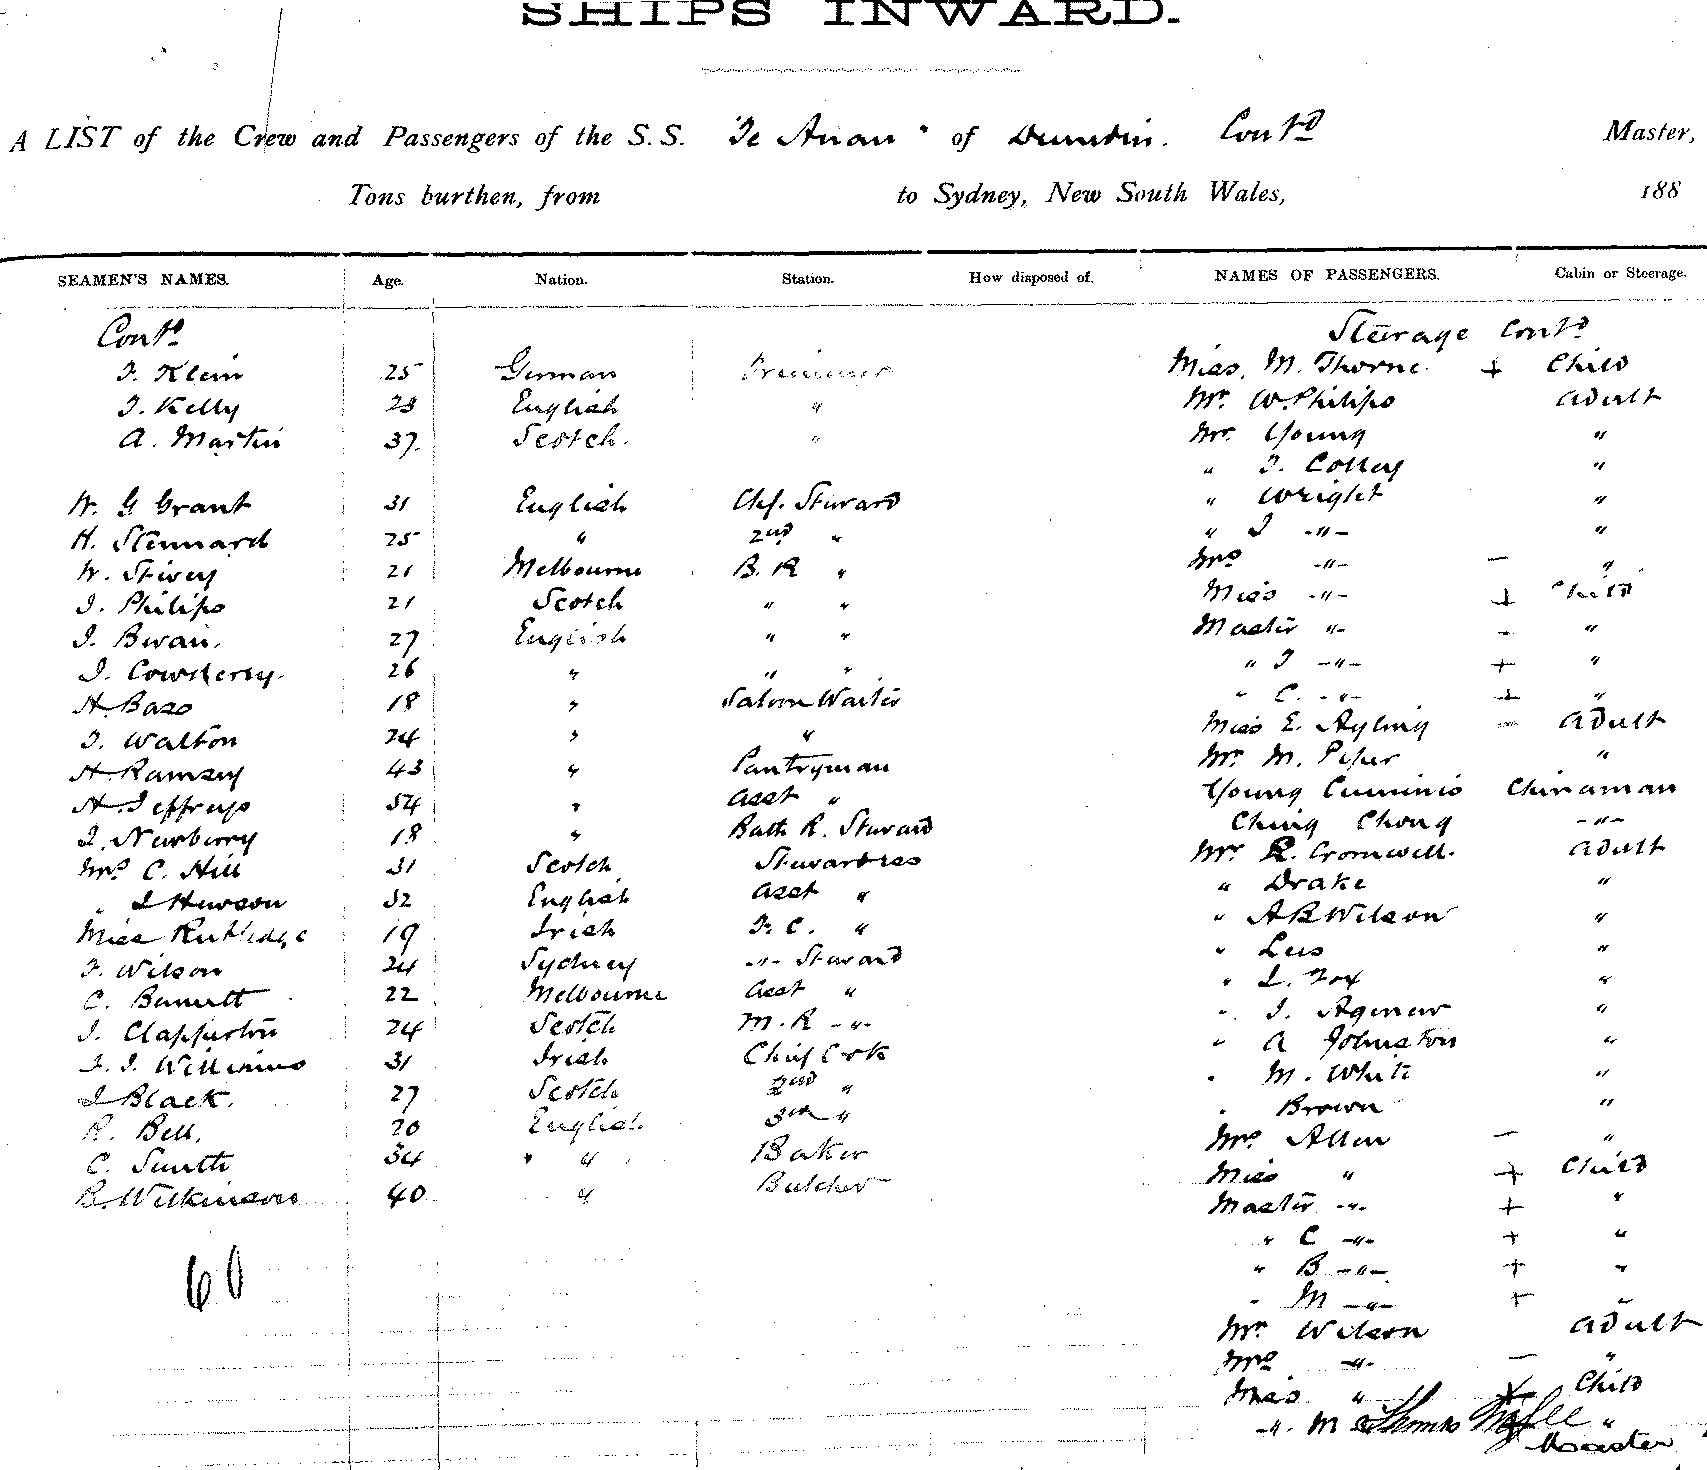 SHIPS INWARD.
A LIST of the Crew and Passengers of the S.S. "Te Anau" of Dunedin. Contd Master,
Tons burthen, from to Sydney, New South Wales, 188
SEAMEN'S NAMES. Age. Nation. Station. How disposed of. NAMES OF PASSENGERS. Cabin or Steerage.
Contd Steerage Contd
F. Klein 25 German Trimmer Miss. M. Thorne + Child
J. Kelly 23 English " Mr. W. Philips adult
A. Martin 37. Scotch. " Mr. Young "
" J. Colley "
W. G Grant 31 English Chf. Steward " Wright "
H. Stennard 25 " 2nd " " J -"- "
W. Stivey 21 Melbourne B. R " Mrs -"- - "
J. Philips 21 Scotch " " Miss -"- + Child
J. Bwan. 27 English " " Master "- - "
J. Cowderey. 26 " " " " J -"- + "
H. Bass 18 " Saloon Waiter " C. -"- + "
J. Walton 24 " " Miss E. Ayling - adult
H. Ramsey 43 " Pantryman Mr. M. Piper "
H. Jeffreys 54 " asst " Young Cummins Chinaman
J. Newberry 18 " Bath R. Steward Ching Chong -"-
Mrs C. Hill 31 Scotch Stewardess Mr. R. Cromwell. adult
" J Hewson 52 English asst " " Drake "
Miss Rutledge 19 Irish F. C. " " A B Wilson "
F. Wilson 24 Sydney -"- Steward " Lees "
C. Burnett 22 Melbourne asst " " J. Fox "
J. Clapperton 24 Scotch M. R -"- " J. Agnew "
J. J. Williams 31 Irish Chief Cook " A Johnston "
J Black. 27 Scotch 2nd " " M. White "
R. Bell. 20 English 3rd " " Brown "
C. Smith 34 " " Baker Mrs Allen - "
B. Wilkinson 40 " Butcher Miss " + Child
Master -"- + "
" C -"- + "
60 " B -"- + "
" M -"- + "
Mr. Wilson adult
Mrs -"- - "
Miss " + Child
-". M Thomas "
Master